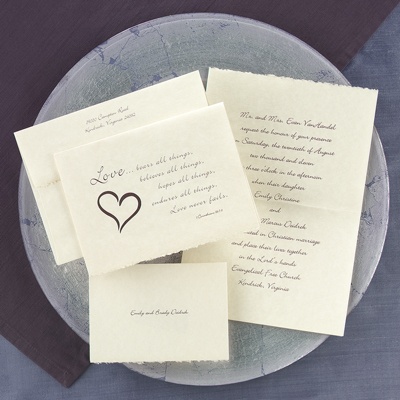 Kendrick, Virginia
Love... bears all things,
believes all things,
hopes all things,
endures all things.
Love never fails.
Mr. and Mrs. Evan
request the honor of your presence
on Saturday, the twentieth of August
two thousand and eleven
at three o'clock in the afternoon
when their daughter
Emily Christine
and
united in Christian marriage
and place their lives together
in the Lord's hands
Evangelical Free Church
Kendrick, Virginia
Emily and